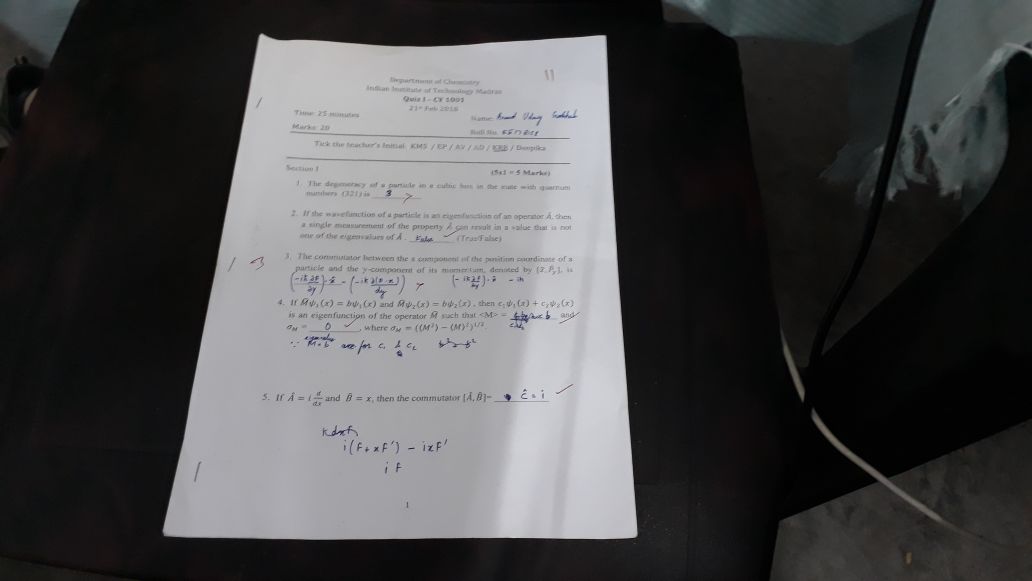 11
Department of Chemistry
Indian Institute of Technology Madras
Quiz I - CY 1001
21st Feb 2018
Time: 25 minutes
Name:
Marks: 20
Roll No.
Tick the teacher's Initial: KMS / EP / AV / AD / KRB / Deepika
Section I
(5x1 = 5 Marks)
1. The degeneracy of a particle in a cubic box in the state with quantum
numbers (321) is 3
2. If the wavefunction of a particle is an eigenfunction of an operator Â, then
a single measurement of the property Â can result in a value that is not
one of the eigenvalues of Â. False (True/False)
3
3. The commutator between the x component of the position coordinate of a
particle and the y-component of its momentum, denoted by [x̂, P̂y], is
(-iħ ∂F/∂y)·x̂ - (-iħ ∂(F·x)/∂y) (-iħ ∂F/∂y)·x̂ - iħ
4. If M̂ψ₁(x) = bψ₁(x) and M̂ψ₂(x) = bψ₂(x), then c₁ψ₁(x) + c₂ψ₂(x)
is an eigenfunction of the operator M̂ such that <M> = b and
σM = 0, where σM = (⟨M²⟩ − ⟨M⟩²)^1/2.
∵ M = b are for c₁ & c₂ b² - b²
5. If Â = i d/dx and B̂ = x, then the commutator [Â, B̂]= ĉ = i
i(F + xF') - ixF'
iF
1